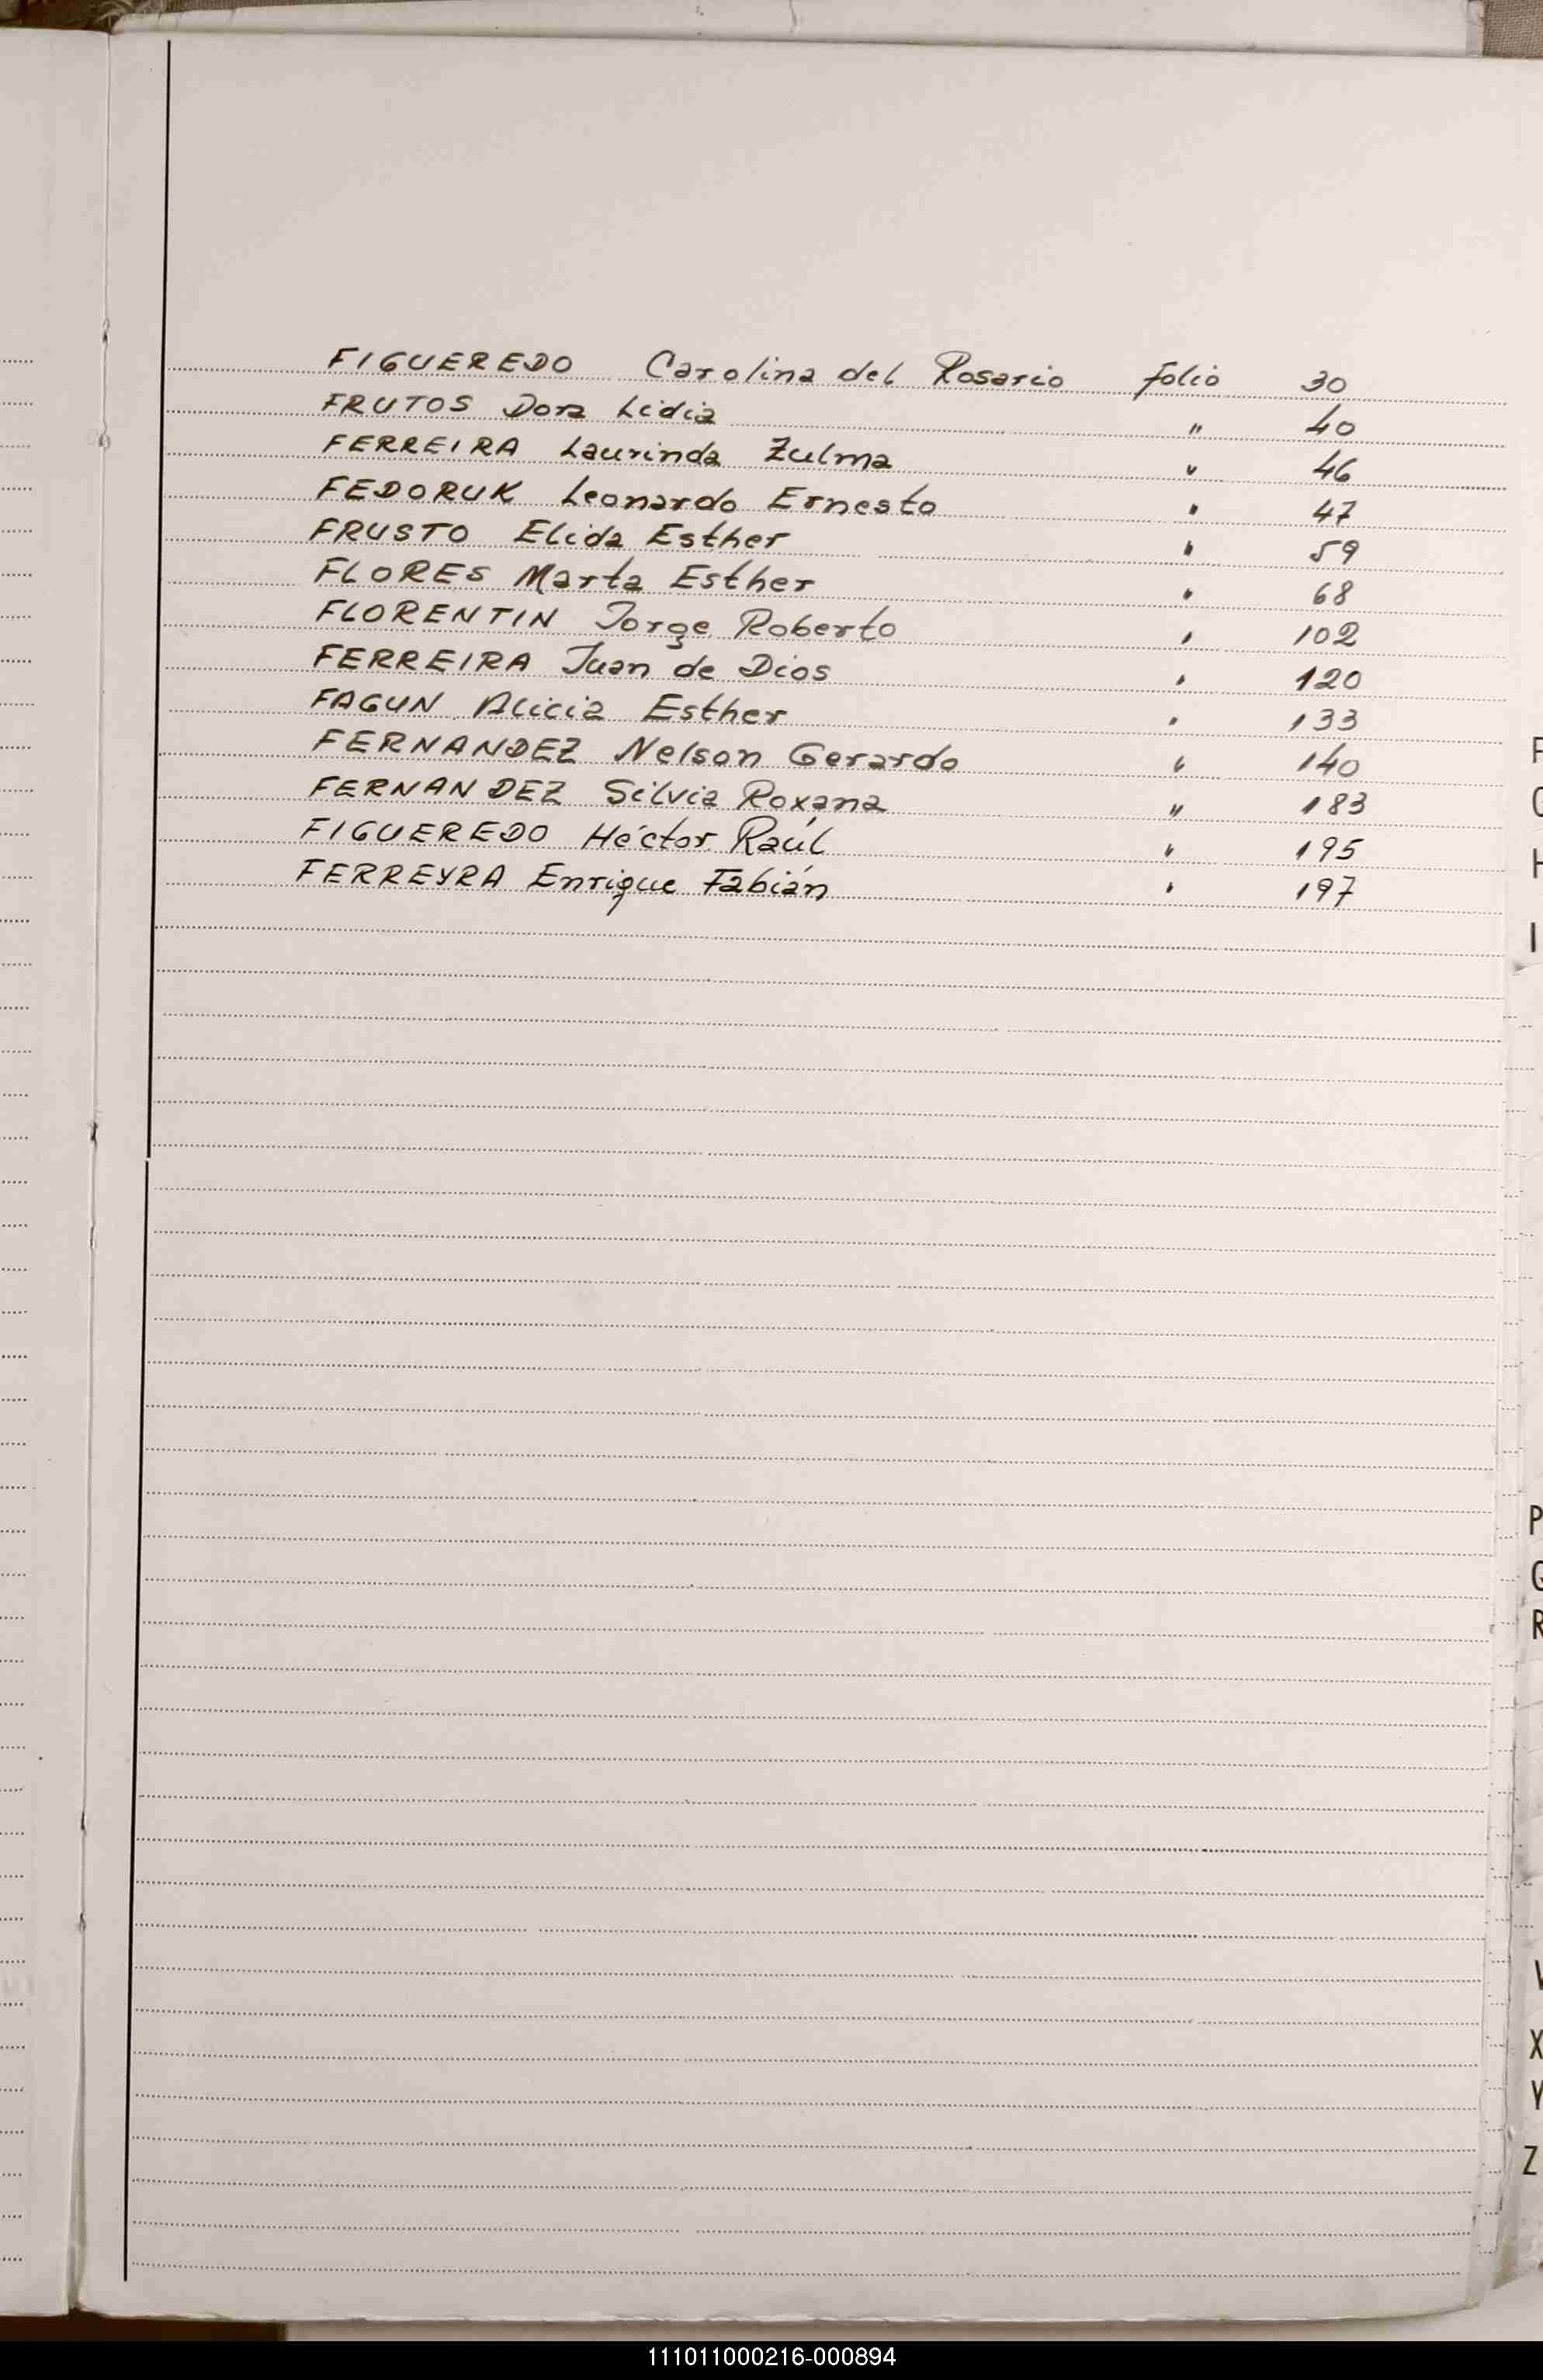 FIGUEREDO Carolina del Rosario folio 30
FRUTOS Dora Lidia " 40
FERREIRA Laurinda Zulma " 46
FEDORUK Leonardo Ernesto " 47
FRUSTO Elida Esther " 59
FLORES Marta Esther " 68
FLORENTIN Jorge Roberto " 102
FERREIRA Juan de Dios " 120
FAGUN Alicia Esther " 133
FERNANDEZ Nelson Gerardo " 140
FERNANDEZ Silvia Roxana " 183
FIGUEREDO Héctor Raúl " 195
FERREYRA Enrique Fabián " 197
H
I
P
R
X
Y
Z
111011000216-000894